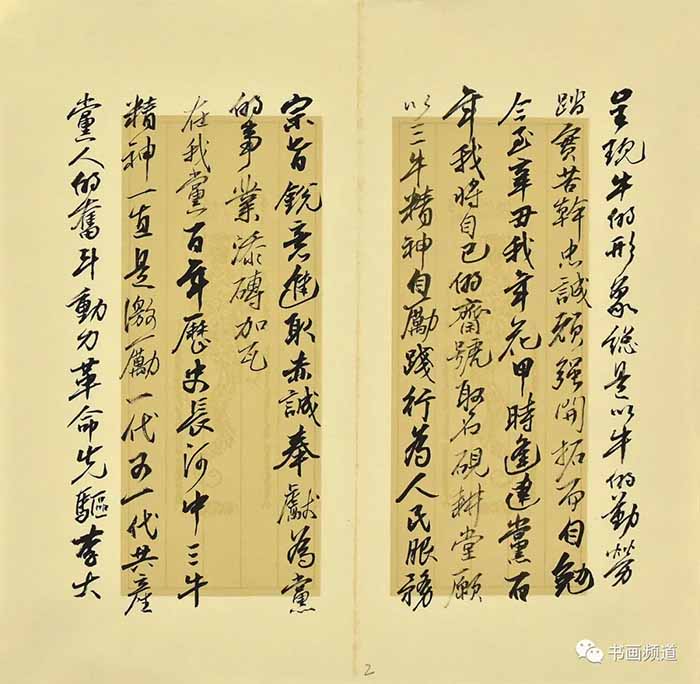 呈現牛的形象總是以牛的勤勞
踏實苦幹忠誠頑强開拓而自勉
今至辛丑我年花甲時逢建黨百
年我將自己的齋號取名硯耕堂願
以三牛精神自勵踐行為人民服務
宗旨銳意進取赤誠奉獻為黨
的事業添磚加瓦
在我黨百年歷史長河中三牛
精神一直是激勵一代又一代共產
黨人的奮斗動力革命先驅李大
2
书画频道